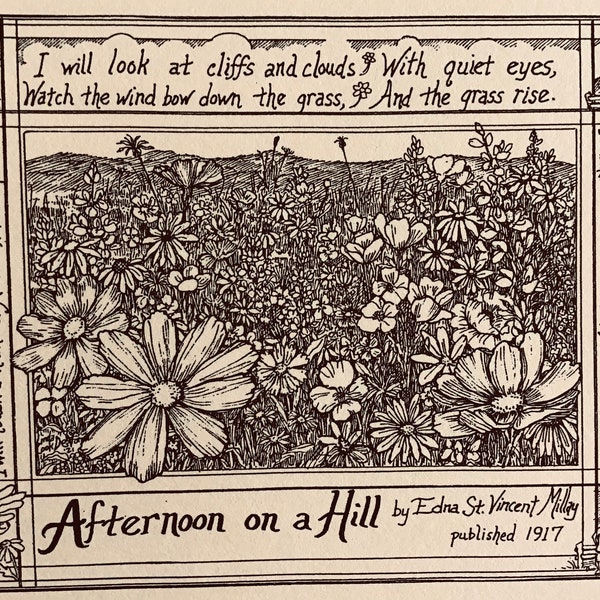 I will look at cliffs and clouds With quiet eyes,
Watch the wind bow down the grass, And the grass rise.
Afternoon on a Hill by Edna St. Vincent Millay
published 1917